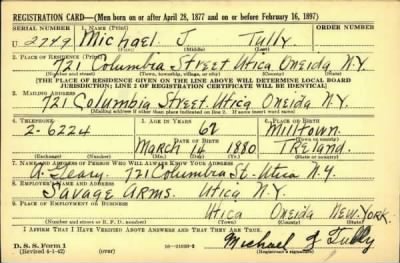 REGISTRATION CARD—(Men born on or after April 28, 1877 and on or before February 16, 1897)
SERIAL NUMBER 1. NAME (Print) ORDER NUMBER
U 2749 Michael J. Tully
(First) (Middle) (Last)
2. PLACE OF RESIDENCE (Print)
721 Columbia Street Utica Oneida N.Y.
(Number and street) (Town, township, village, or city) (County) (State)
[THE PLACE OF RESIDENCE GIVEN ON THE LINE ABOVE WILL DETERMINE LOCAL BOARD
JURISDICTION; LINE 2 OF REGISTRATION CERTIFICATE WILL BE IDENTICAL]
3. MAILING ADDRESS
721 Columbia Street Utica Oneida N.Y.
[Mailing address if other than place indicated on line 2. If same insert word same]
4. TELEPHONE 5. AGE IN YEARS 6. PLACE OF BIRTH
2-6224 62 Milltown
DATE OF BIRTH (Town or county)
March 14 1880 Ireland.
(Exchange) (Number) (Mo.) (Day) (Yr.) (State or country)
7. NAME AND ADDRESS OF PERSON WHO WILL ALWAYS KNOW YOUR ADDRESS
A. Geary. 721 Columbia St- Utica N.Y.
8. EMPLOYER'S NAME AND ADDRESS
Savage Arms. Utica N.Y.
9. PLACE OF EMPLOYMENT OR BUSINESS
Utica Oneida New York.
(Number and street or R. F. D. number) (Town) (County) (State)
I AFFIRM THAT I HAVE VERIFIED ABOVE ANSWERS AND THAT THEY ARE TRUE.
D. S. S. Form 1
(Revised 4-1-42) (over) Michael J Tully
(Registrant's signature)